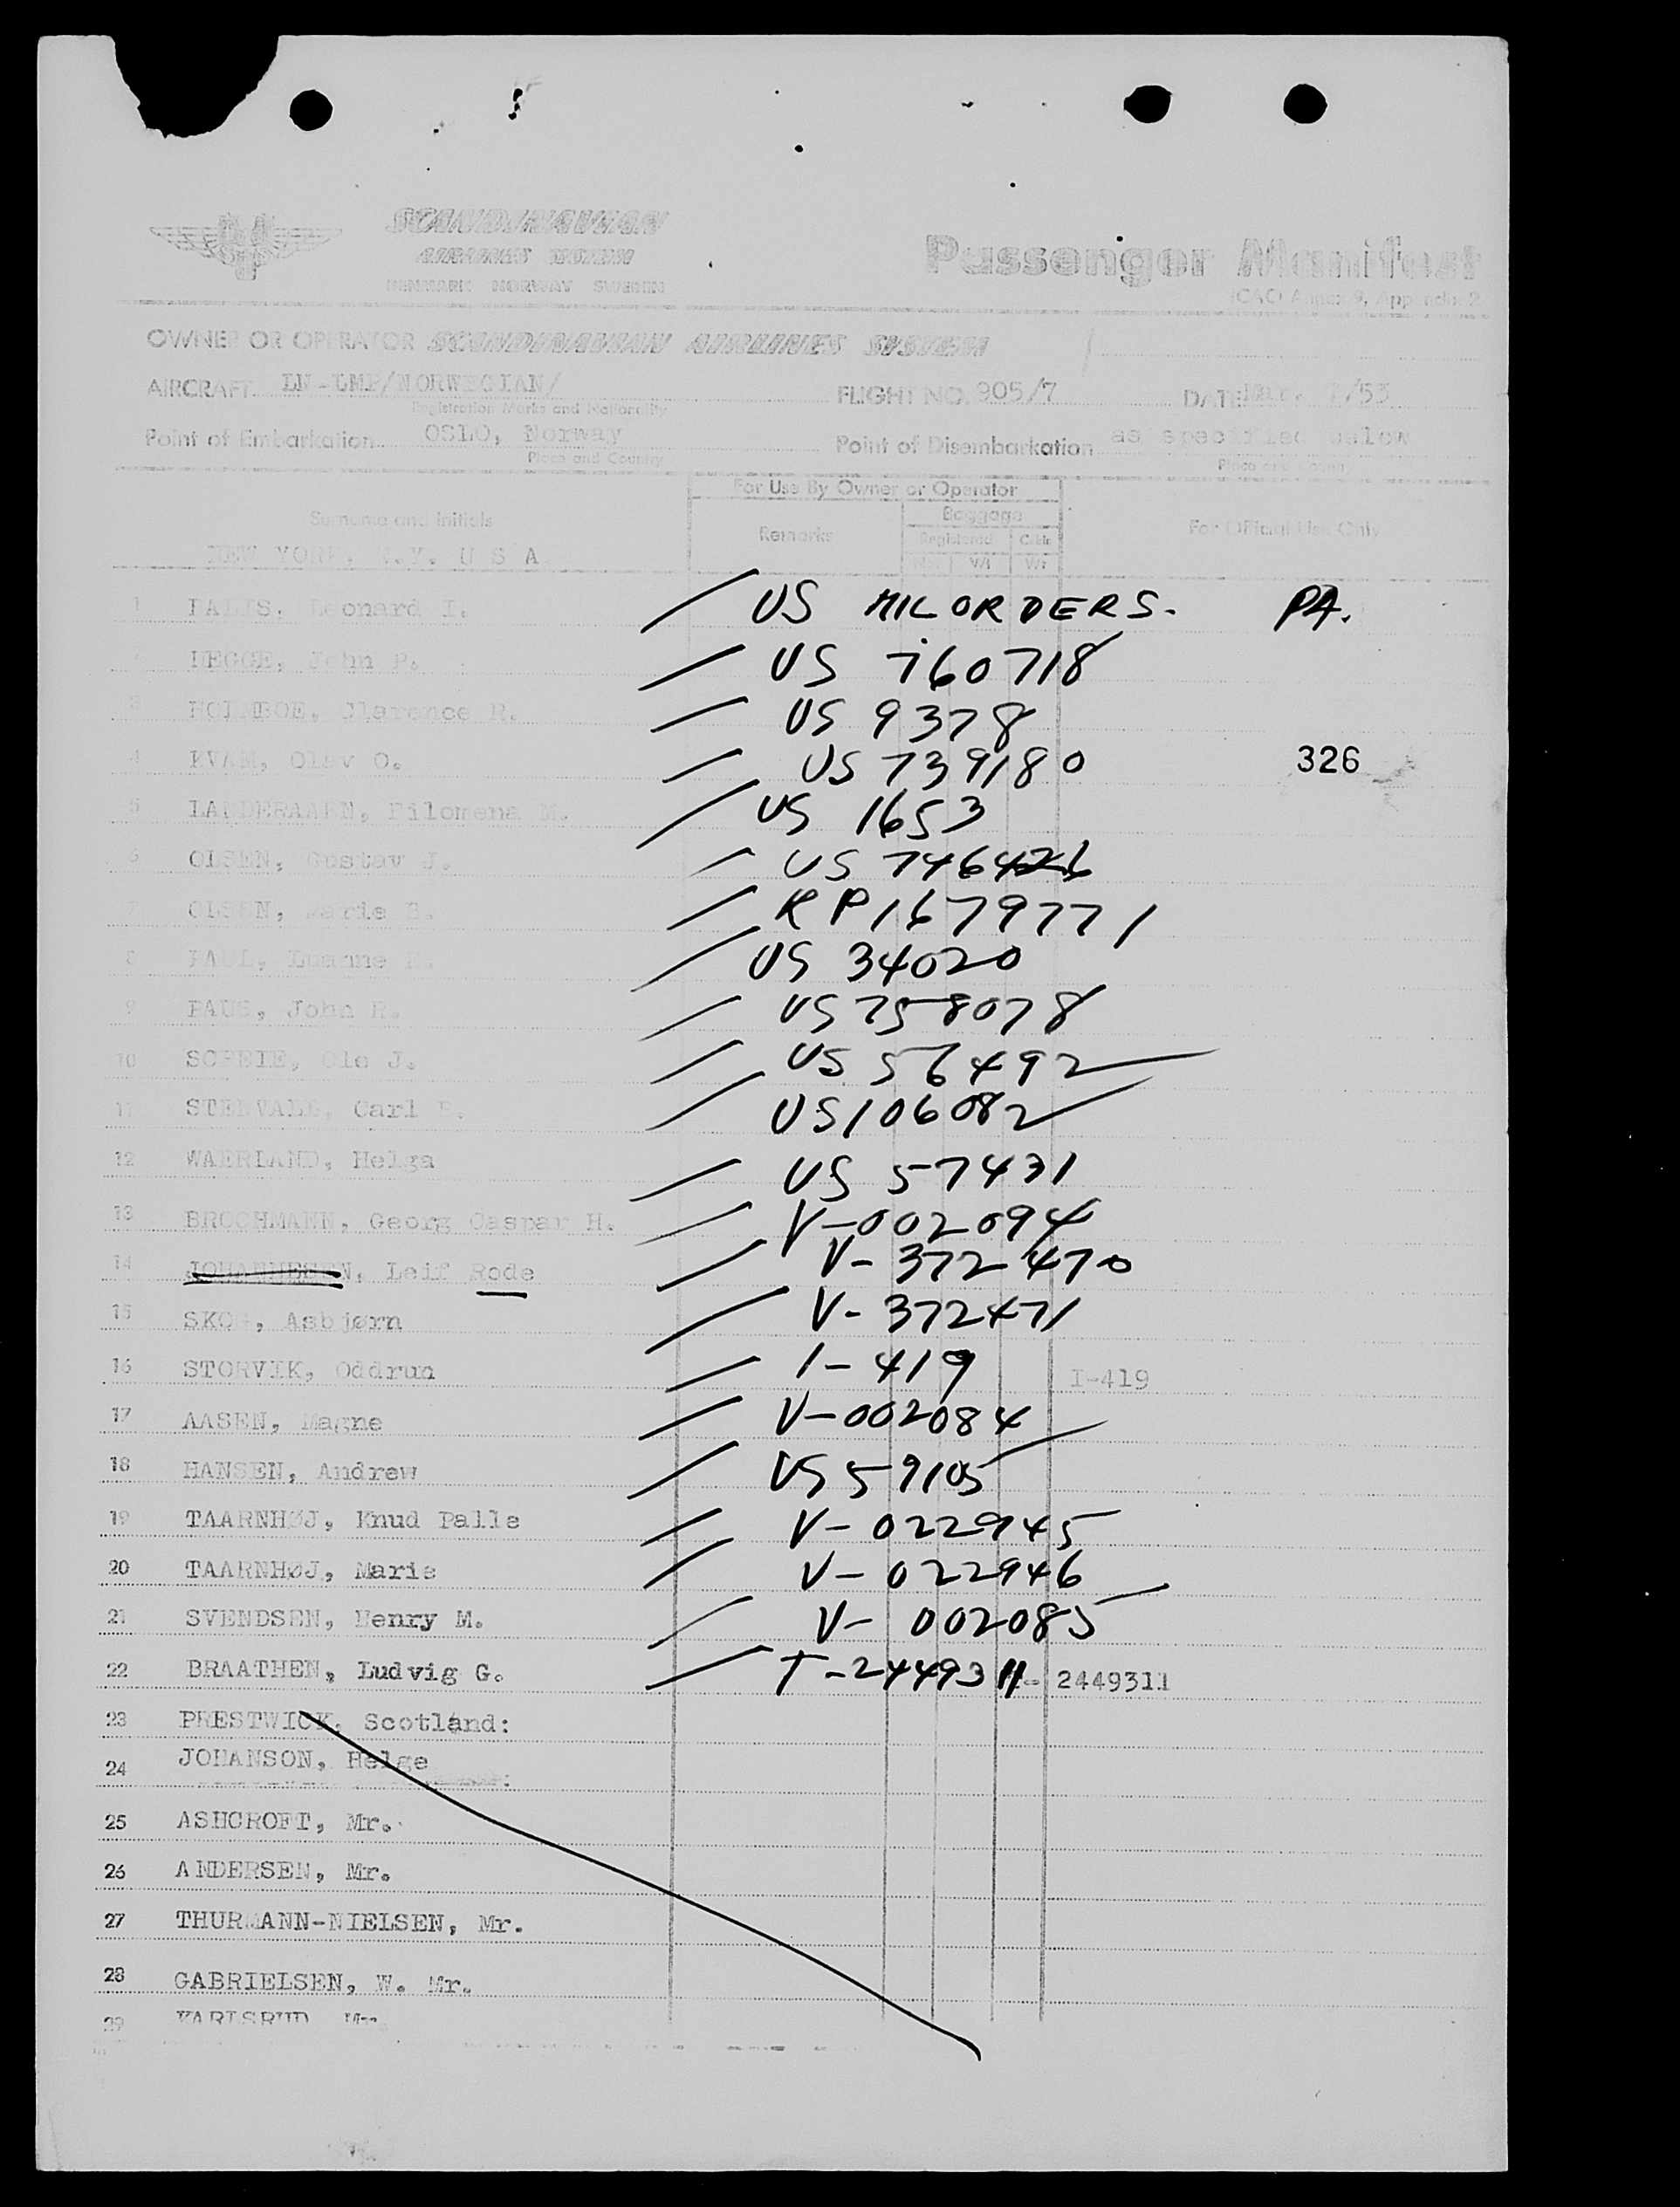 SCANDINAVIAN
AIRLINES SYSTEM
DENMARK NORWAY SWEDEN
Passenger Manifest
(ICAO Annex 9, Appendix 2
OWNER OR OPERATOR SCANDINAVIAN AIRLINES SYSTEM
AIRCRAFT /NORWEGIAN/ FLIGHT NO. 905/7 DATE /53
Registration Marks and Nationality
Point of Embarkation OSLO, Norway Point of Disembarkation as specified below
Place and Country Place and Country
For Use By Owner or Operator
Surname and Initials Remarks Baggage For Official Use Only
Registered Cabin
NEW YORK, N.Y. U S A Wt Wt
1 Leonard I. US MIL ORDERS. PA.
2 HEGGE, John P. US 760718
3 HOLMBOE, Clarence R. US 9378
4 KVAM, Olav O. US 739180 326
5 Filomena M. US 1653
6 OLSEN, Gustav J. US 746426
7 OLSEN, Marie RP167977 1
8 PAUL, Luanne US 34020
9 John R. US 758078
10 Ole J. US 56492
11 STENVALL, Carl US 106082
12 WAERLAND, Helga US 57431
13 BROCHMANN, Georg Caspar H. V-002094
14 JOHANNESEN, Leif Rode V-372470
15 SKOG, Asbjørn V-372471
16 STORVIK, Oddrun 1-419 I-419
17 AASEN, Magne V-002084
18 HANSEN, Andrew US 59105
19 TAARNHØJ, Knud Palle V-022945
20 TAARNHØJ, Marie V-022946
21 SVENDSEN, Henry M. V-002085
22 BRAATHEN, Ludvig G. T-2449311 2449311
23 PRESTWICK, Scotland:
24 JOHANSON, Helge
25 ASHCROFT, Mr.
26 ANDERSEN, Mr.
27 THURMANN-NIELSEN, Mr.
28 GABRIELSEN, W. Mr.
29 KARLSRUD, Mr.